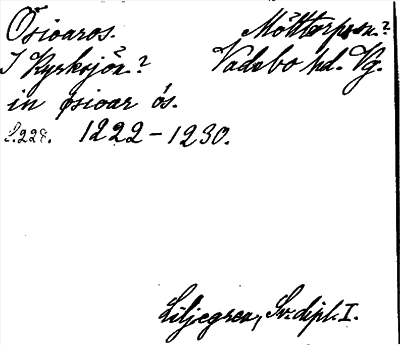 Osioaros. Möttorps sn.?
I Kyrksjön? Vadsbo hd. Vg.
in psioar ós.
S.228. 1222-1230.
Liljegren, Sv. dipl. I.